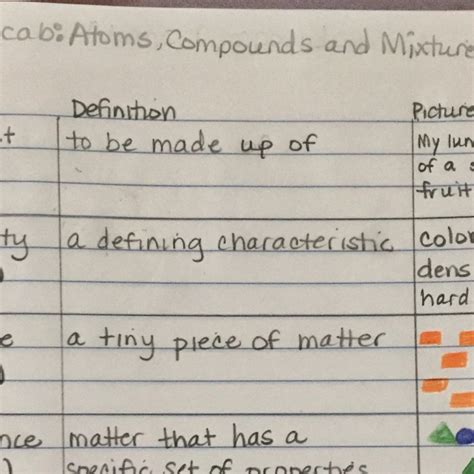 cab: Atoms, Compounds and Mixture
Definition Picture
t to be made up of My lun
of a s
fruit
ty a defining characteristic color
dens
hard
e a tiny piece of matter
nce matter that has a
specific set of properties